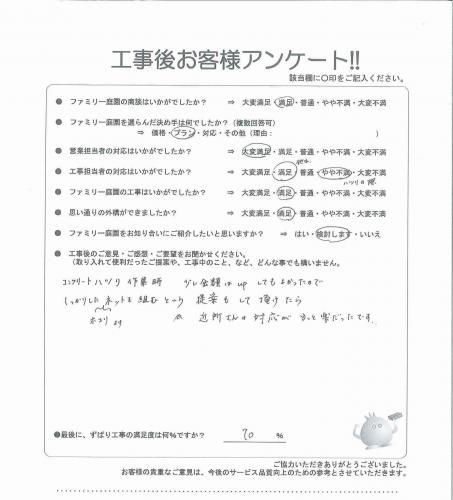 工事後お客様アンケート!!
該当欄に〇印をご記入ください。
● ファミリー庭園の商談はいかがでしたか? ⇒ 大変満足・満足・普通・やや不満・大変不満
● ファミリー庭園を選らんだ決め手は何でしたか?(複数回答可)
⇒ 価格・プラン・対応・その他(理由: )
● 営業担当者の対応はいかがでしたか? ⇒ 大変満足・満足・普通・やや不満・大変不満
● 工事担当者の対応はいかがでしたか? ⇒ 大変満足・満足・普通・やや不満・大変不満
ハツリの際
● ファミリー庭園の工事はいかがでしたか? ⇒ 大変満足・満足・普通・やや不満・大変不満
● 思い通りの外構ができましたか? ⇒ 大変満足・満足・普通・やや不満・大変不満
● ファミリー庭園をお知り合いにご紹介したいと思いますか? ⇒ はい・検討します・いいえ
● 工事後のご意見・ご感想・ご要望をお聞かせください。
(取り入れて便利だったご提案や、工事中のこと、など、どんな事でも構いません。
コンクリートハツリ作業時 少し金額はupしてもよかったので
しっかりしたネットを組むとから 提案もして頂けたら
ホコリ
近所さんの対応がもっと楽だったです。
●最後に、ずばり工事の満足度は何%ですか? 70 %
ご協力いただきありがとうございました。
お客様の貴重なご意見は、今後のサービス品質向上のための参考とさせていただきます。